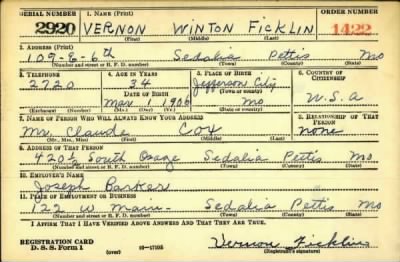 SERIAL NUMBER 1. NAME (Print) ORDER NUMBER
2920 VERNON WINTON FICKLIN 1422
(First) (Middle) (Last)
3. ADDRESS (Print)
109-E-6th Sedalia Pettis Mo
(Number and street or R. F. D. number) (Town) (County) (State)
2. TELEPHONE 4. AGE IN YEARS 5. PLACE OF BIRTH 6. COUNTRY OF CITIZENSHIP
2720 34 Jefferson City
DATE OF BIRTH (Town)
Mar 1 1906 Mo U.S.A
(Exchange) (Number) (Mo.) (Day) (Yr.) (State or country)
7. NAME OF PERSON WHO WILL ALWAYS KNOW YOUR ADDRESS 8. RELATIONSHIP OF THAT PERSON
Mr. Claude Cox none
(Mr., Mrs., Miss) (First) (Middle) (Last)
9. ADDRESS OF THAT PERSON
420½ South Osage Sedalia Pettis Mo
(Number and street or R. F. D. number) (Town) (County) (State)
10. EMPLOYER'S NAME
Joseph Barker
11. PLACE OF EMPLOYMENT OR BUSINESS
122 W Main- Sedalia Pettis Mo
(Number and street or R. F. D. number) (Town) (County) (State)
I AFFIRM THAT I HAVE VERIFIED ABOVE ANSWERS AND THAT THEY ARE TRUE.
REGISTRATION CARD
D. S. S. Form 1 (over) 16-17105 Vernon Ficklin
(Registrant's signature)